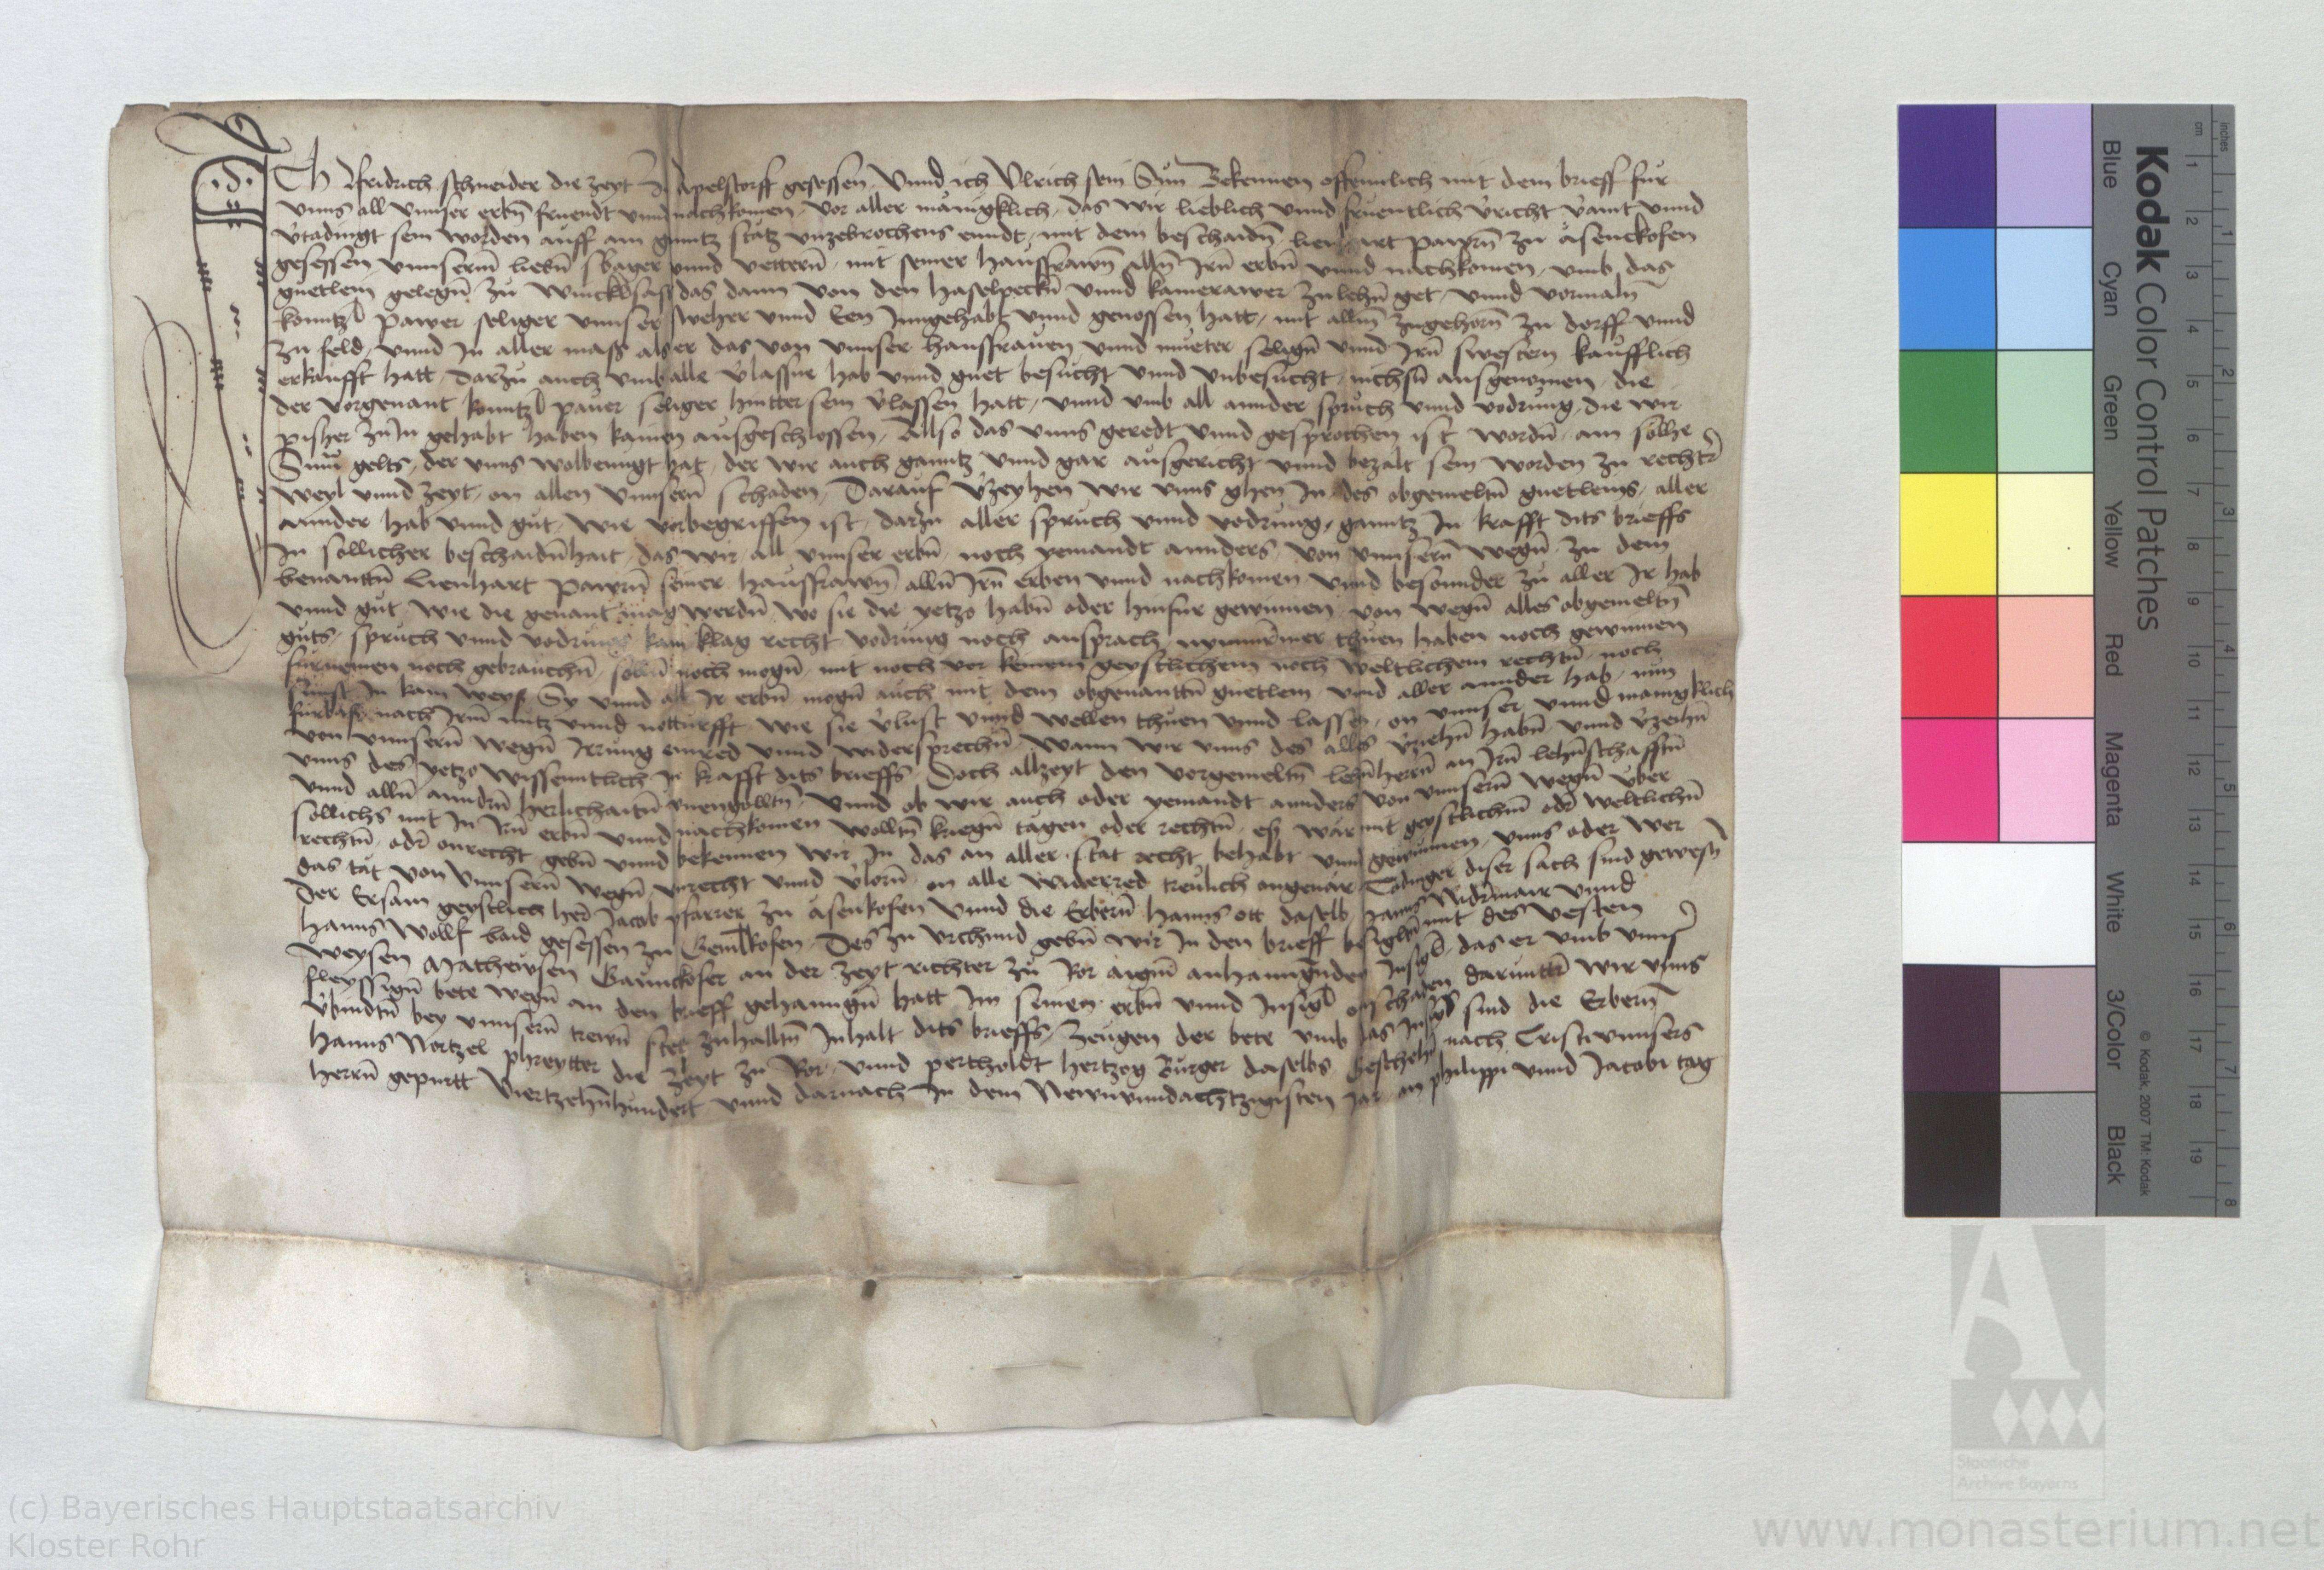 ICh Fridrich schneider die zeyt zu Apelstorff gesessen Vnnd ich Vlrich sein Sun Bekennen offennlich mit dem brieff fur
vnns all vnnser erbn̄ freundt vnnd nachkomen vor aller mänigklich das wir lieblich vnnd fruentlich v̓richt v̓aint vnnd
v̓tadingt sein worden auff ain gantz stätz vnzebrochens ennde mit dem beschaidn̄ lienhart pawrn̄ zu äsenckofen
gesessen vnnserm̄ liebn̄ swager vnnd vettern̄ mit seiner haussfrawn̄ alln̄ Jrn̄ erbn̄ vnnd nachkomen vmb das
guetlein gelegn̄ zu winckelsass das dann von den haselpeckn̄ vnnd kamerawer zu lehn̄ get vnnd vormaln̄
konntzl pawer seliger vnnser sweher vnnd Een Jnngehabt vnnd genossen hatt mit allm̄ zugehörn̄ zu dorff vnnd
zu feld vnnd Jn aller maß als er das von vnnser haussfrauen vnnd mueter selign̄ vnnd Jrn̄ swestern kaufflich
erkaufft hatt darzu auch vmb alle v̓lassne hab vnnd guet besucht vnnd vnbesucht nichsn̄ ausgenomen die
der vorgenant konntzl pauer seliger hintter sein v̓lassen hatt vnnd vmb all annder spruch vnnd vodrung die wir
pisher zu Jn gehabt haben kainen ausgeschlossen Allso das vnns geredt vnnd gesprochen ist wordn̄ ain sollhe
Sum gelts der vnns wolbenuigt hat der wir auch ganntz vnnd gar ausgericht vnnd bezalt sein worden zu rechtr̄
weyl vnnd zeyt on allen vnnsern̄ schaden Darauf v̓zeyhen wir vnns ghen Jn des obgemeltn̄ guetleins aller
annder hab vnnd gut wie vorbegriffen ist darzu aller spruch vnnd vodrung ganntz Jn krafft dits brieffs
Jn sollicher beschaidn̄hait das wir all vnnser erbn̄ noch yemandt annders von vnnsern̄ wegn̄ zu dem
benanttn̄ Lienhart pawrn̄ seiner haussfrawn̄ alln̄ Jrn̄ erben vnnd nachkomen vnnd besonnder zu aller Jr hab
vnnd gut wie die genant mag werdn̄ wo sie die yetzo habn̄ oder hinfur gewinnen von wegn̄ alles obgemeltn̄
guts spruch vnnd vodrung kain klag recht vodrung noch ansprach nymmermer thuen haben noch gewinnen
furnemen noch gebrauchn̄ solln̄ noch mogn̄ mit noch vor kainem geystlichem noch weltlichem rechtn̄ noch
sunst Jn kain weyß Sy vnnd all Jr erbn̄ mogn̄ auch mit dem obgenanttn̄ guetlein vnd aller annder hab nun
furbaß nach Jrm̄ nutz vnnd notturfft wie sie v̓lust vnnd wellen thuen vnnd lassen on vnnser vnnd manigklich
von vnnsern̄ wegn̄ Jrrung einred vnnd widersprechn̄ Wann wir vnns des alles v̓ziehn̄ habn̄ vnnd v̓zeihn̄
vnns des yetzo wissenntlich Jn krafft dits brieffs Doch allzeyt den vorgemeltn̄ lehn̄herrn̄ an Jrn̄ lehn̄schafftn̄
vnnd alln̄ anndrn̄ herlichaitn̄ vnengolltn̄ Vnnd ob wir auch oder yemandt annders von vnnsern̄ wegn̄ vber
sollichs mit Jn Jrn̄ erbn̄ vnnd nachkomen wolltn̄ kriegn̄ tagen oder rechtn̄ es wär mit geystlichm̄ odr̄ weltlichn̄
rechtn̄ odr̄ onrecht gebn̄ vnnd bekennen wir Jn das an aller stat recht behabt vnnd gewinnen vnns oder wer
das tät von vnnsern̄ wegn̄ vnrecht vnnd v̓lorn̄ on alle widerred treulich ongeuär Tädinger diser sach sind gewesn̄
Der Ersam geystlich her Jacob pfarrer zu äsenkofen vnnd die Erbern̄ Hanns ott daselb Hanns Widmair vnnd
Hanns Wollf baid gesessen zu Gemlkofen Des zu vrchund gebn̄ wir Jn den brieff besigltn̄ mit des vesten
weysen Matheusen Gaunckofer an der zeyt richter zu Ror aigm̄ anhanngnden Jnsigl das er vmb vnnsr̄
fleyssign̄ bete wegn̄ an den brieff gehanngn̄ hatt Jm seinen erbn̄ vnnd Jnsigl onschaden daruntter wir vnns
v̓bindtn̄ bey vnnsern̄ trewn̄ stet zuhalltn̄ Jnhalt dits brieffs Zeugen der bete vmb das Jnsigl sind die Erbern̄
Hanns Nortzel phreytter die zeyt zu Ror vnnd pertholdt hertzog Burger daselbs Geschehn̄ nach Cristi vnnsers
herrn̄ gepurtt Viertzehn̄hundert vnnd darnach Jn dem Newnvnndachtzigisten Jar an philippi vnnd Jacobi tag
Kodak Color Control Patches
Blue Cyan Green Yellow Red Magenta White 3/Color Black
© Kodak, 2007 TM: Kodak
cm 1 2 3 4 5 6 7 8 9 10 11 12 13 14 15 16 17 18 19
inches 1 2 3 4 5 6 7 8
Staatliche
Archive Bayerns
(c) Bayerisches Hauptstaatsarchiv
Kloster Rohr
www.monasterium.net